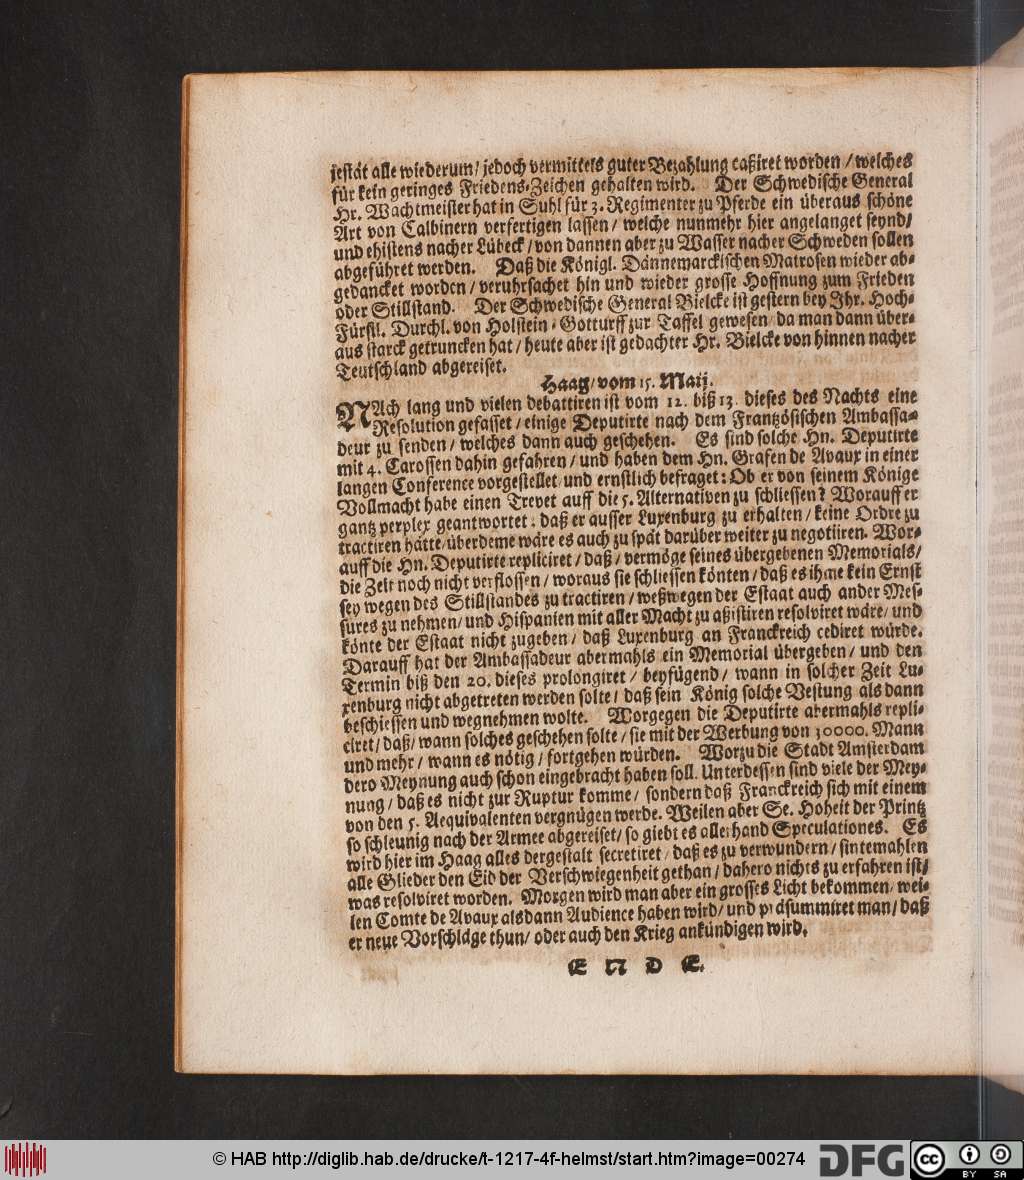 jestät alle wiederum/ jedoch vermittels guter Bezahlung caßiret worden / welches
für kein geringes Friedens-Zeichen gehalten wird. Der Schwedische General
Hr. Wachtmeister hat in Suhl für 3. Regimenter zu Pferde ein überaus schöne
Art von Calbinern verfertigen lassen / welche nunmehr hier angelanget seynd/
und ehistens nacher Lübeck / von dannen aber zu Wasser nacher Schweden sollen
abgeführet werden. Daß die Königl. Dännemarckischen Matrosen wieder ab-
gedancket worden / veruhrsachet hin und wieder grosse Hoffnung zum Frieden
oder Stillstand. Der Schwedische General Bielcke ist gestern bey Ihr. Hoch-
Fürstl. Durchl. von Holstein-Gotturff zur Taffel gewesen/ da man dann über-
aus starck getruncken hat / heute aber ist gedachter Hr. Bielcke von hinnen nacher
Teutschland abgereiset.
Haag/ vom 15. Maij.
NAch lang und vielen debattiren ist vom 12. biß 13. dieses des Nachts eine
Resolution gefasset / einige Deputirte nach dem Frantzösischen Ambassa-
deur zu senden / welches dann auch geschehen. Es sind solche Hn. Deputirte
mit 4. Carossen dahin gefahren / und haben dem Hn. Grafen de Avaux in einer
langen Conference vorgestellet/ und ernstlich befraget: Ob er von seinem Könige
Vollmacht habe einen Trevet auff die 5. Alternativen zu schliessen? Worauff er
gantz perplex geantwortet: daß er ausser Luxenburg zu erhalten / keine Ordre zu
tractiren hätte/ überdeme wäre es auch zu spät darüber weiter zu negotiiren. Wor-
auff die Hn. Deputirte repliciret / daß / vermöge seines übergebenen Memorials/
die Zeit noch nicht verflossen / woraus sie schliessen könten / daß es ihme kein Ernst
sey wegen des Stillstandes zu tractiren / weßwegen der Estaat auch ander Mes-
sures zu nehmen/ und Hispanien mit aller Macht zu aßistiren resolviret wäre / und
könte der Estaat nicht zugeben / daß Luxenburg an Franckreich cediret würde.
Darauff hat der Ambassadeur abermahls ein Memorial übergeben / und den
Termin biß den 20. dieses prolongiret / beyfügend / wann in solcher Zeit Lu-
xenburg nicht abgetreten werden solte / daß sein König solche Vestung als dann
beschiessen und wegnehmen wolte. Worgegen die Deputirte abermahls repli-
ciret / daß/ wann solches geschehen solte / sie mit der Werbung von 30000. Mann
und mehr / wann es nötig / fortgehen würden. Worzu die Stadt Amsterdam
dero Meynung auch schon eingebracht haben soll. Unterdessen sind viele der Mey-
nung / daß es nicht zur Ruptur komme / sondern daß Franckreich sich mit einem
von den 5. Aequivalenten vergnügen werde. Weilen aber Se. Hoheit der Printz
so schleunig nach der Armee abgereiset / so giebt es allerhand Speculationes. Es
wird hier im Haag alles dergestalt secretiret / daß es zu verwundern / sintemahlen
alle Glieder den Eid der Verschwiegenheit gethan / dahero nichts zu erfahren ist/
was resolviret worden. Morgen wird man aber ein grosses Licht bekommen/ wei-
len Comte de Avaux alsdann Audience haben wird / und präsummiret man / daß
er neue Vorschläge thun / oder auch den Krieg ankündigen wird.
E N D E.
© HAB http://diglib.hab.de/drucke/t-1217-4f-helmst/start.htm?image=00274
DFG
cc BY SA